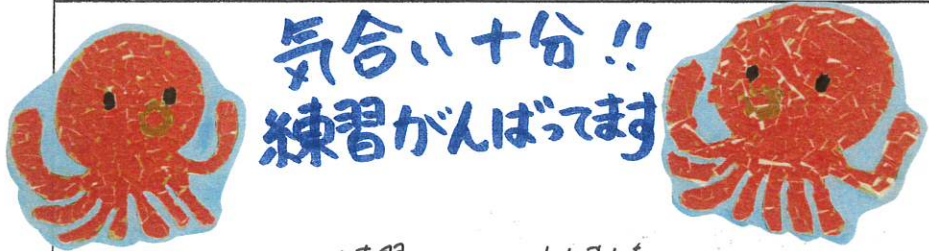 気合い十分!!
練習がんばってます